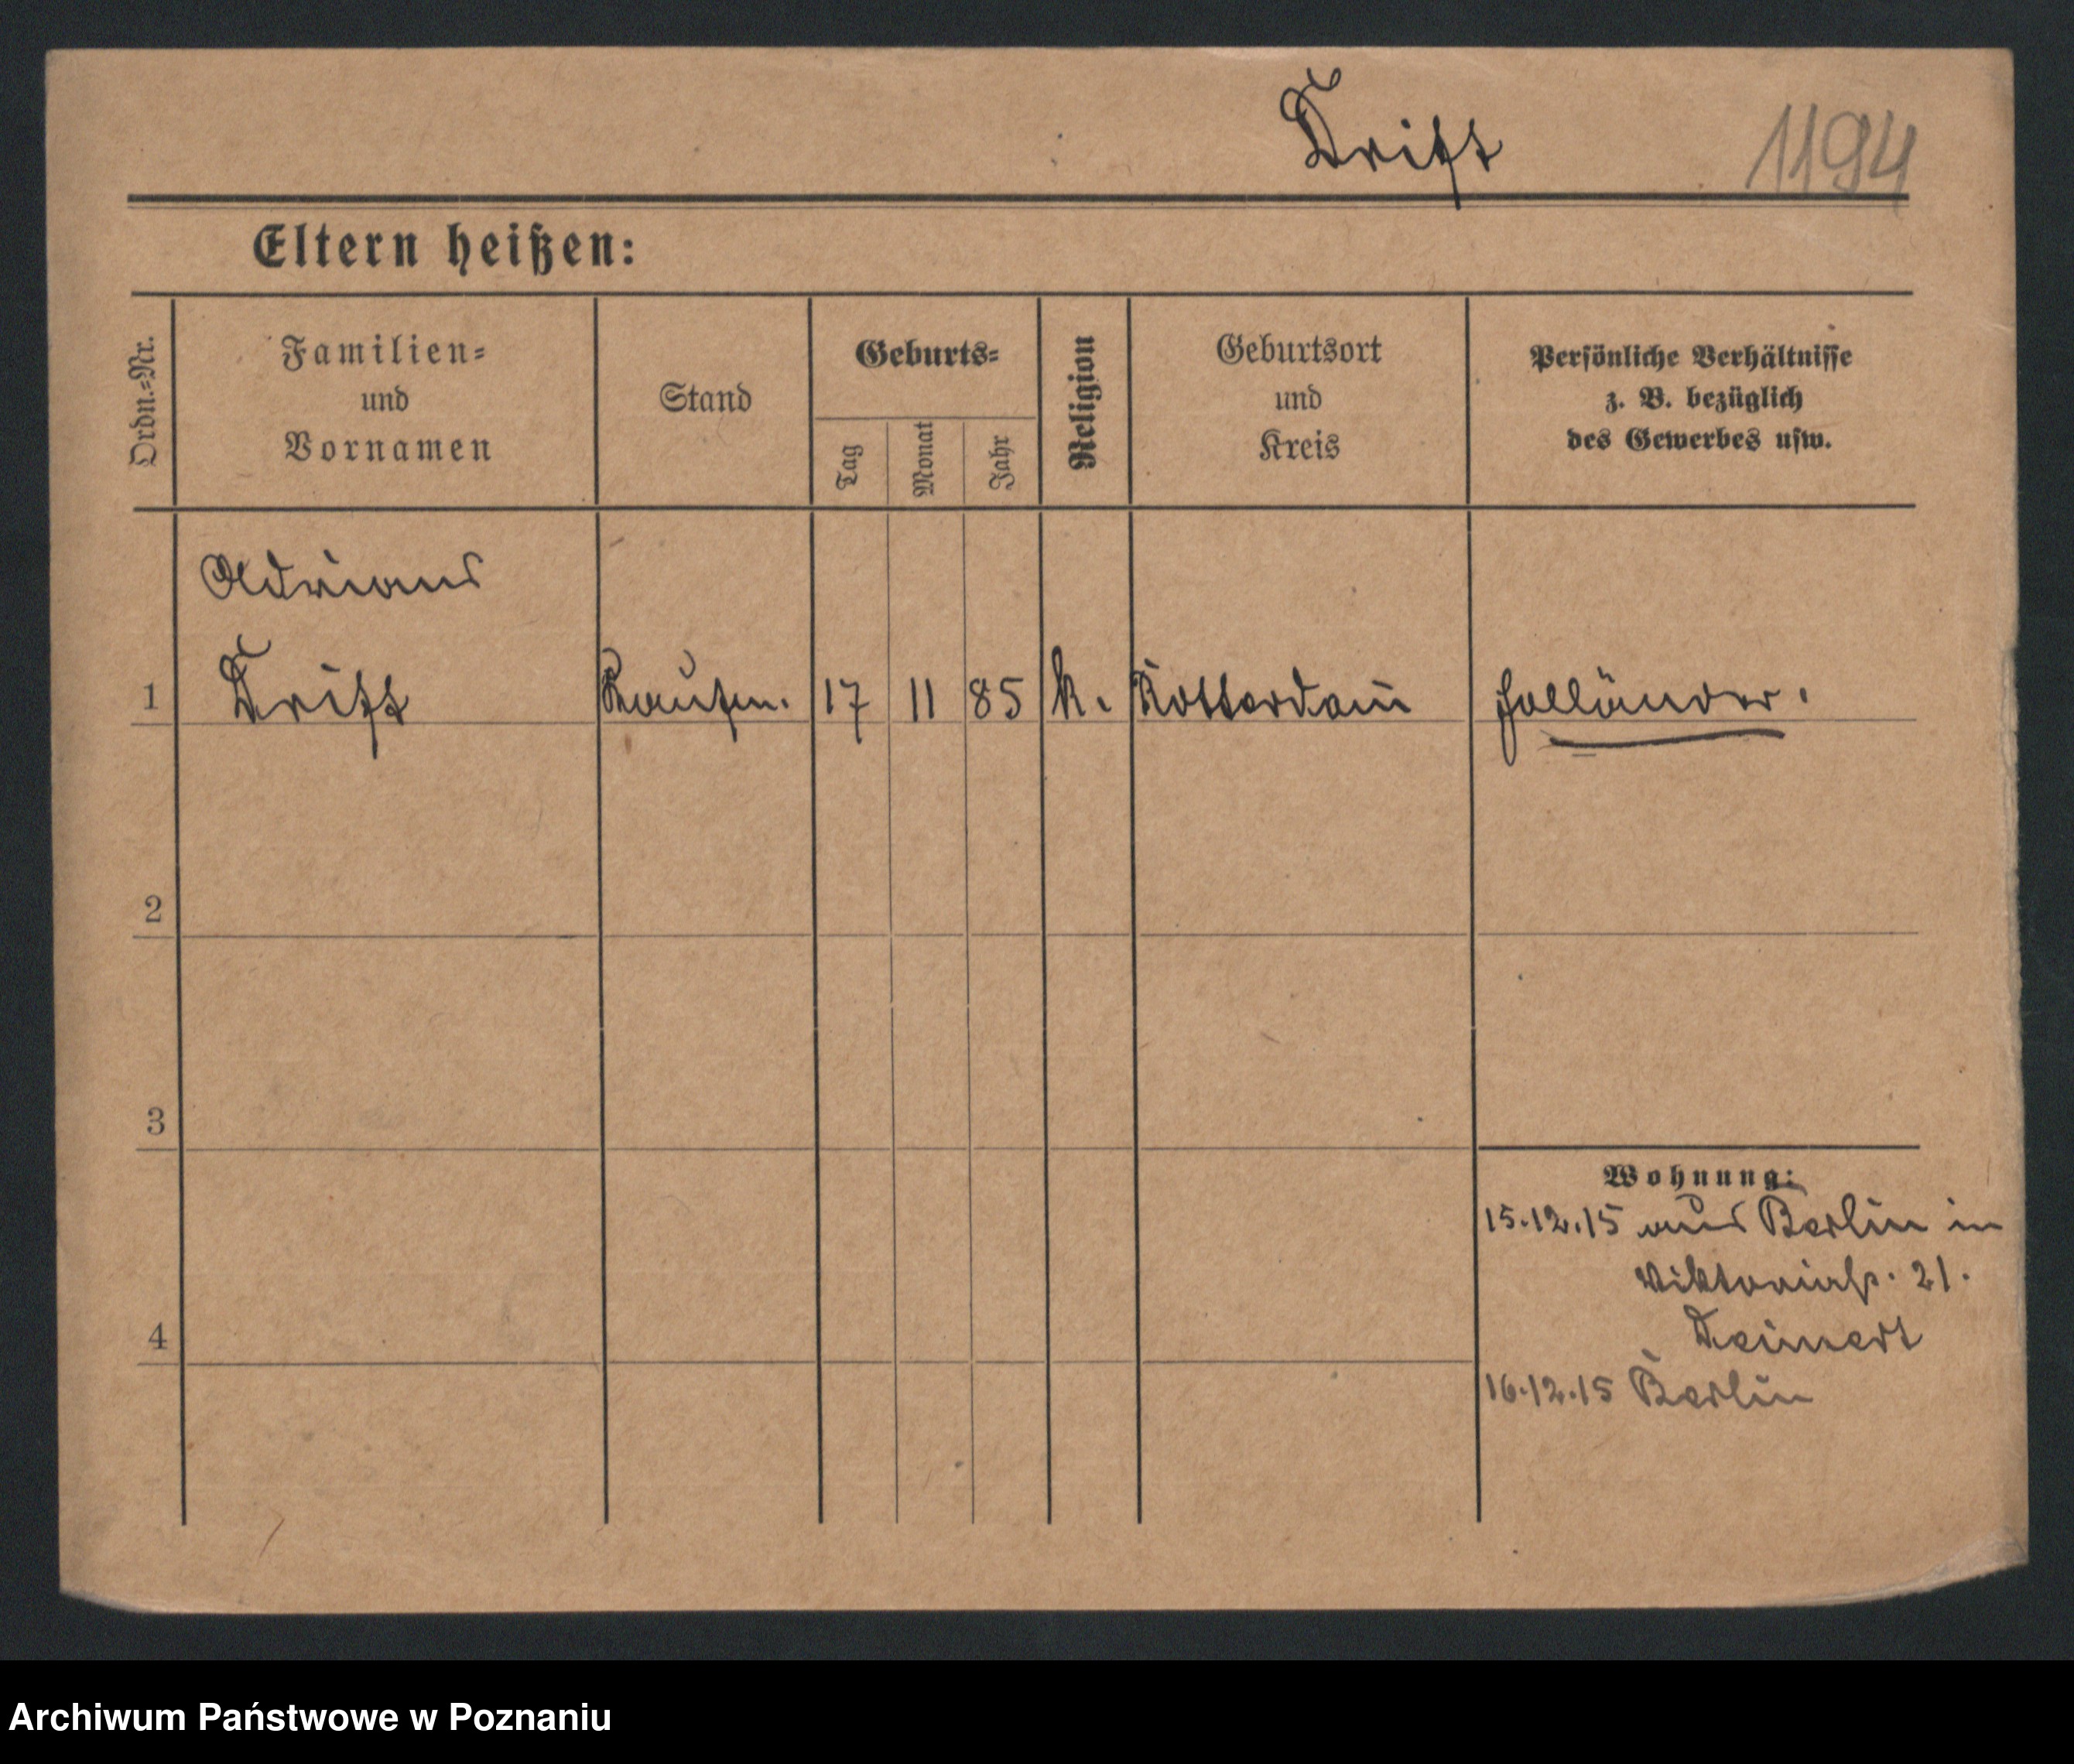 Drift 1194
Eltern heißen:
Ordn.-Nr.
Familien-
und
Vornamen
Stand
Geburts-
Tag
Monat
Jahr
Religion
Geburtsort
und
Kreis
Persönliche Verhältnisse
z. B. bezüglich
des Gewerbes usw.
Adrianus
1 Drift Kaufm. 17 11 85 k. Rotterdam Holländer.
2
3
Wohnung:
15.12.15 aus Berlin in
Viktoriastr. 21.
4
16.12.15 Berlin
Archiwum Państwowe w Poznaniu